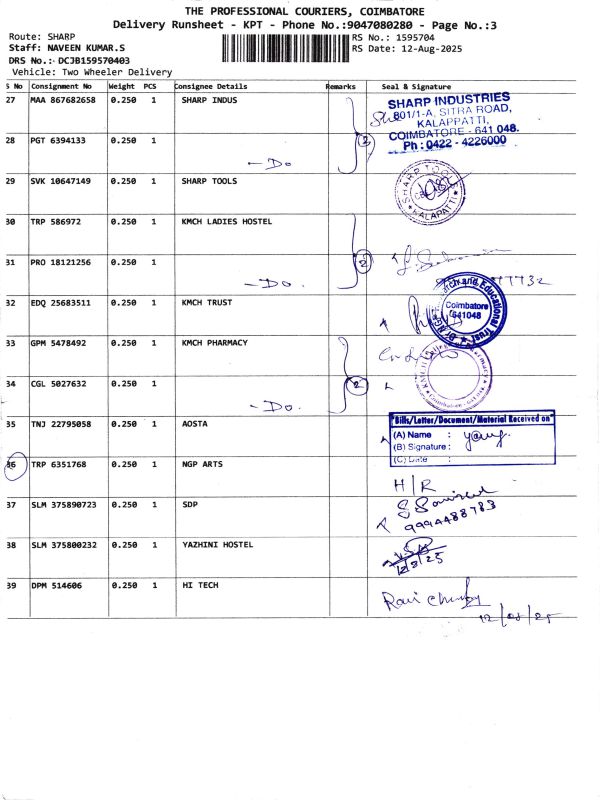 THE PROFESSIONAL COURIERS, COIMBATORE
Delivery Runsheet - KPT - Phone No.:9047080280 - Page No.:3
Route: SHARP
RS No.: 1595704
Staff: NAVEEN KUMAR.S
RS Date: 12-Aug-2025
DRS No.: DCJB159570403
Vehicle: Two Wheeler Delivery
S No Consignment No Weight PCS Consignee Details Remarks Seal & Signature
27 MAA 867682658 0.250 1 SHARP INDUS
SHARP INDUSTRIES
801/1-A, SITRA ROAD,
KALAPPATTI,
COIMBATORE - 641 048.
Ph : 0422 - 4226000
28 PGT 6394133 0.250 1
- Do 2
29 SVK 10647149 0.250 1 SHARP TOOLS
SHARP TOOLS
KALAPATTI
30 TRP 586972 0.250 1 KMCH LADIES HOSTEL
31 PRO 18121256 0.250 1
- Do. 2
32 EDQ 25683511 0.250 1 KMCH TRUST
and Educational Trust
Coimbatore
641048
33 GPM 5478492 0.250 1 KMCH PHARMACY
34 CGL 5027632 0.250 1
- Do. 2
35 TNJ 22795058 0.250 1 AOSTA
Bills/Letter/Document/Material Received on
(A) Name :
(B) Signature :
(C) Date :
36 TRP 6351768 0.250 1 NGP ARTS
H/R
37 SLM 375890723 0.250 1 SDP
9994488783
38 SLM 375800232 0.250 1 YAZHINI HOSTEL
12/8/25
39 DPM 514606 0.250 1 HI TECH
12/08/25